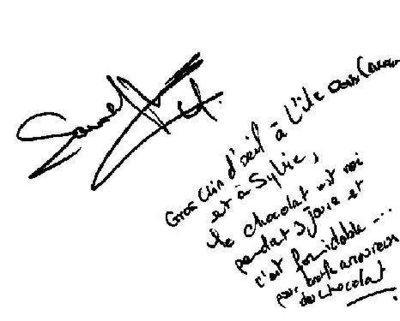 Gros clin d'œil à L'île aux
et à Sylvie,
le chocolat est roi
pendant 3 jours et
c'est formidable ...
pour tout amoureux
du chocolat